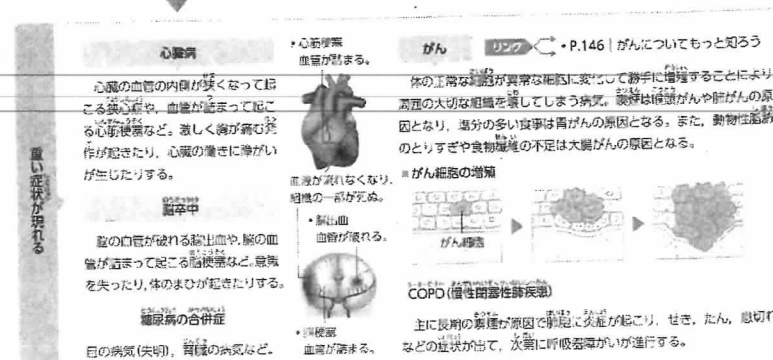 重い症状が現れる
心臓病
心臓の血管の内側が狭くなって起
こる狭心症や，血管が詰まって起こ
る心筋梗塞など。激しく胸が痛む発
作が起きたり，心臓の働きに障がい
が生じたりする。
脳卒中
脳の血管が破れる脳出血や，脳の血
管が詰まって起こる脳梗塞など。意識
を失ったり，体のまひが起きたりする。
糖尿病の合併症
目の病気(失明)，腎臓の病気など。
・心筋梗塞
血管が詰まる。
血液が流れなくなり，
組織の一部が死ぬ。
・脳出血
血管が破れる。
・脳梗塞
血管が詰まる。
がん リンク ・P.146｜がんについてもっと知ろう
体の正常な細胞が異常な細胞に変化して勝手に増殖することにより，
周囲の大切な組織を壊してしまう病気。喫煙は喉頭がんや肺がんの原
因となり，塩分の多い食事は胃がんの原因となる。また，動物性脂肪
のとりすぎや食物繊維の不足は大腸がんの原因となる。
■がん細胞の増殖
がん細胞
COPD(慢性閉塞性肺疾患)
主に長期の喫煙が原因で肺胞に炎症が起こり，せき，たん，息切れ
などの症状が出て，次第に呼吸器障がいが進行する。